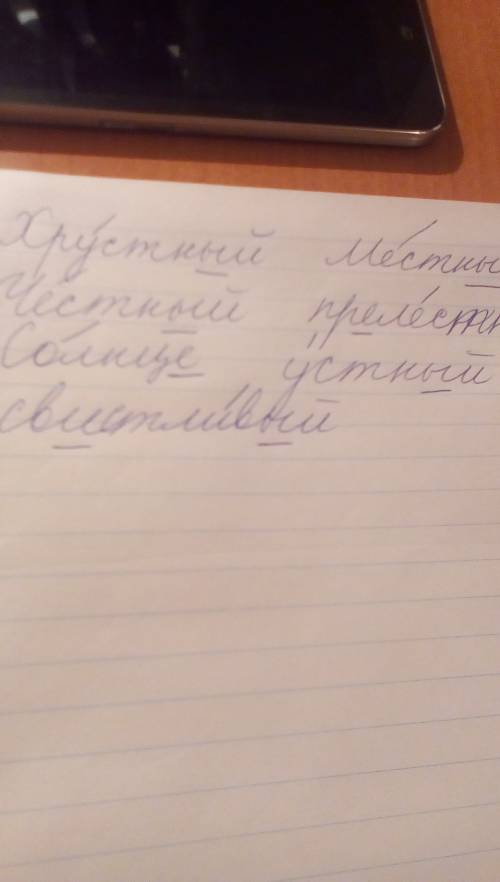 Хру́стный ме́стны
Че́стный преле́стн
Со́лнце у́стный
свистли́вый